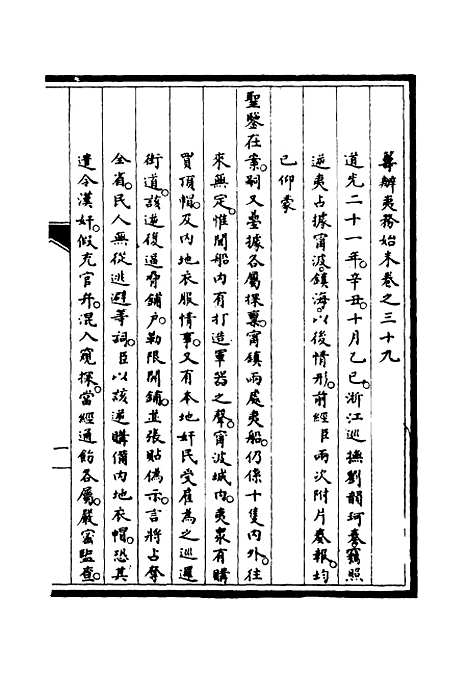 籌辦夷務始末卷之三十九
道光二十一年。辛丑。十月乙巳。浙江巡撫劉韻珂奏。竊照
逆夷占據甯波。鎮海。以後情形。前經臣兩次附片奏報。均
已仰蒙
聖鑒在案。嗣又疊據各屬探稟。甯鎮兩處夷船。仍係十隻內外。往
來無定。惟聞船內有打造軍器之聲。甯波城內。夷眾有購
買頂帽。及內地衣服情事。又有本地奸民受雇為之巡邏
街道。該逆復逼脅鋪戶。勒限開鋪。並張貼偽示。言將占奪
全省。民人無從逃避等詞。臣以該逆購備內地衣帽。恐其
遣令漢奸。假充官弁。混入窺探。當經通飭各屬。嚴密監查。